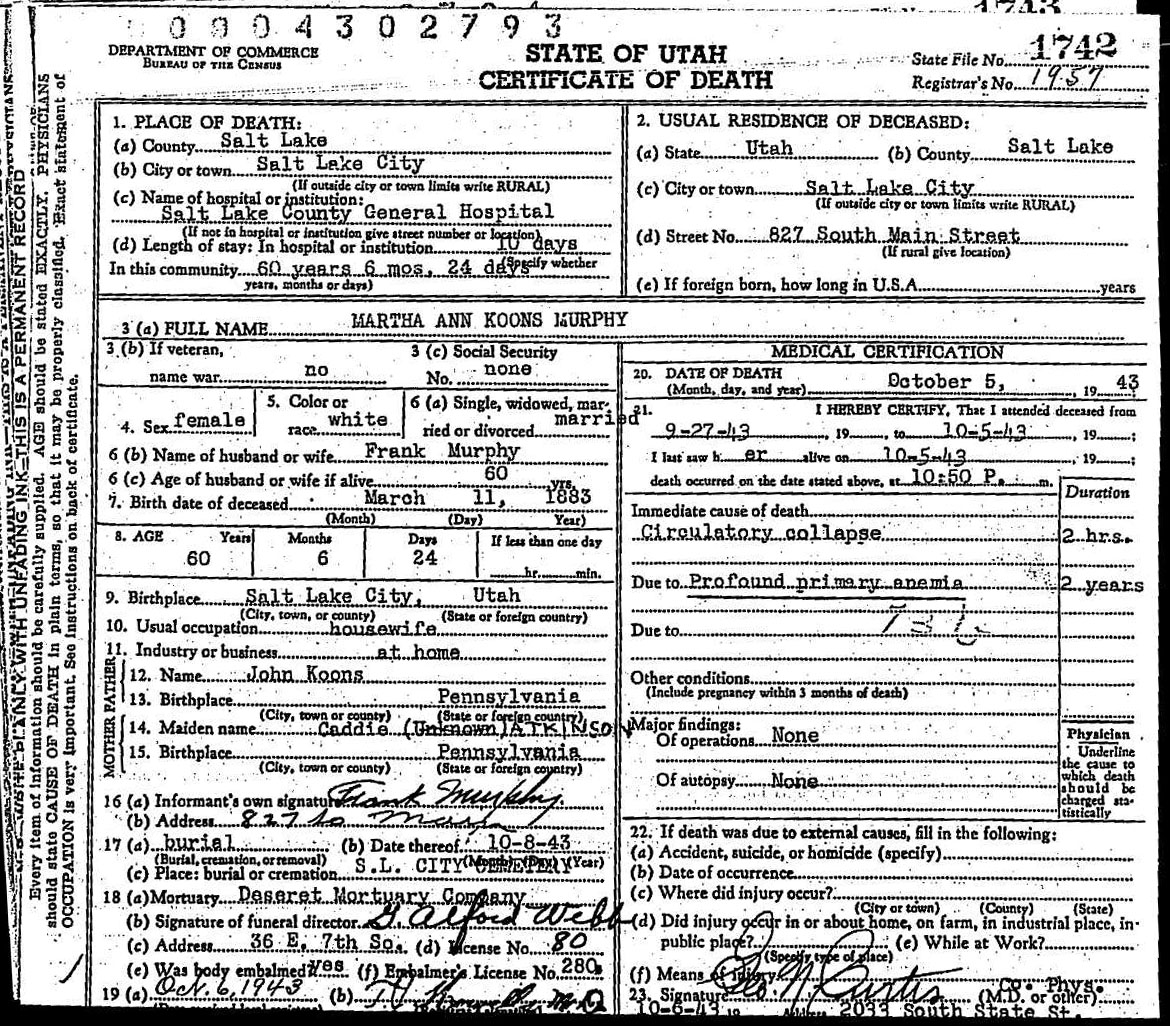 0004302793
1743
DEPARTMENT OF COMMERCE
BUREAU OF THE CENSUS
STATE OF UTAH
CERTIFICATE OF DEATH
State File No. 1742
Registrar's No. 1957
WRITE PLAINLY WITH UNFADING INK—THIS IS A PERMANENT RECORD
Every item of information should be carefully supplied. AGE should be stated EXACTLY. PHYSICIANS
should state CAUSE OF DEATH in plain terms, so that it may be properly classified. Exact statement of
OCCUPATION is very important. See instructions on back of certificate.
1. PLACE OF DEATH:
(a) County Salt Lake
(b) City or town Salt Lake City
(If outside city or town limits write RURAL)
(c) Name of hospital or institution:
Salt Lake County General Hospital
(If not in hospital or institution give street number or location)
(d) Length of stay: In hospital or institution 10 days
(Specify whether
In this community 60 years 6 mos, 24 days
years, months or days)
2. USUAL RESIDENCE OF DECEASED:
(a) State Utah (b) County Salt Lake
(c) City or town Salt Lake City
(If outside city or town limits write RURAL)
(d) Street No. 827 South Main Street
(If rural give location)
(e) If foreign born, how long in U.S.A. years
3 (a) FULL NAME MARTHA ANN KOONS MURPHY
3 (b) If veteran,
name war no
3 (c) Social Security
No. none
4. Sex female
5. Color or
race white
6 (a) Single, widowed, mar-
ried or divorced married
6 (b) Name of husband or wife Frank Murphy
6 (c) Age of husband or wife if alive 60 yrs.
7. Birth date of deceased March 11, 1883
(Month) (Day) Year)
8. AGE Years Months Days If less than one day
60 6 24 hr. min.
9. Birthplace Salt Lake City, Utah
(City, town, or county) (State or foreign country)
10. Usual occupation housewife
11. Industry or business at home
FATHER
12. Name John Koons
13. Birthplace Pennsylvania
(City, town or county) (State or foreign country)
MOTHER
14. Maiden name Caddie (Unknown) ATKINSON
15. Birthplace Pennsylvania
(City, town or county) (State or foreign country)
16 (a) Informant's own signature Frank Murphy
(b) Address 827 So Main
17 (a) burial (b) Date thereof 10-8-43
(Burial, cremation, or removal) (Month) (Day) (Year)
(c) Place: burial or cremation S.L. CITY CEMETERY
18 (a) Mortuary Deseret Mortuary Company
(b) Signature of funeral director G. Alford Webb
(c) Address 36 E. 7th So. (d) License No. 80
(e) Was body embalmed? yes (f) Embalmer's License No. 280
19 (a) Oct. 6, 1943 (b)
MEDICAL CERTIFICATION
20. DATE OF DEATH
(Month, day, and year) October 5, , 19 43
21. I HEREBY CERTIFY, That I attended deceased from
9-27-43 , 19 , to 10-5-43 , 19 ;
I last saw h er alive on 10-5-43 , 19 ;
death occurred on the date stated above, at 10:50 P. m.
Duration
Immediate cause of death
Circulatory collapse 2 hrs.
Due to Profound primary anemia 2 years
Due to
Other conditions
(Include pregnancy within 3 months of death)
Major findings:
Of operations None
Of autopsy None
Physician
Underline
the cause to
which death
should be
charged sta-
tistically
22. If death was due to external causes, fill in the following:
(a) Accident, suicide, or homicide (specify)
(b) Date of occurrence
(c) Where did injury occur?
(City or town) (County) (State)
(d) Did injury occur in or about home, on farm, in industrial place, in-
public place? (e) While at Work?
(Specify type of place)
(f) Means of injury
23. Signature Geo. N. Curtis Co. Phys.
(M.D. or other)
10-6-43 19 Address 2033 South State St.